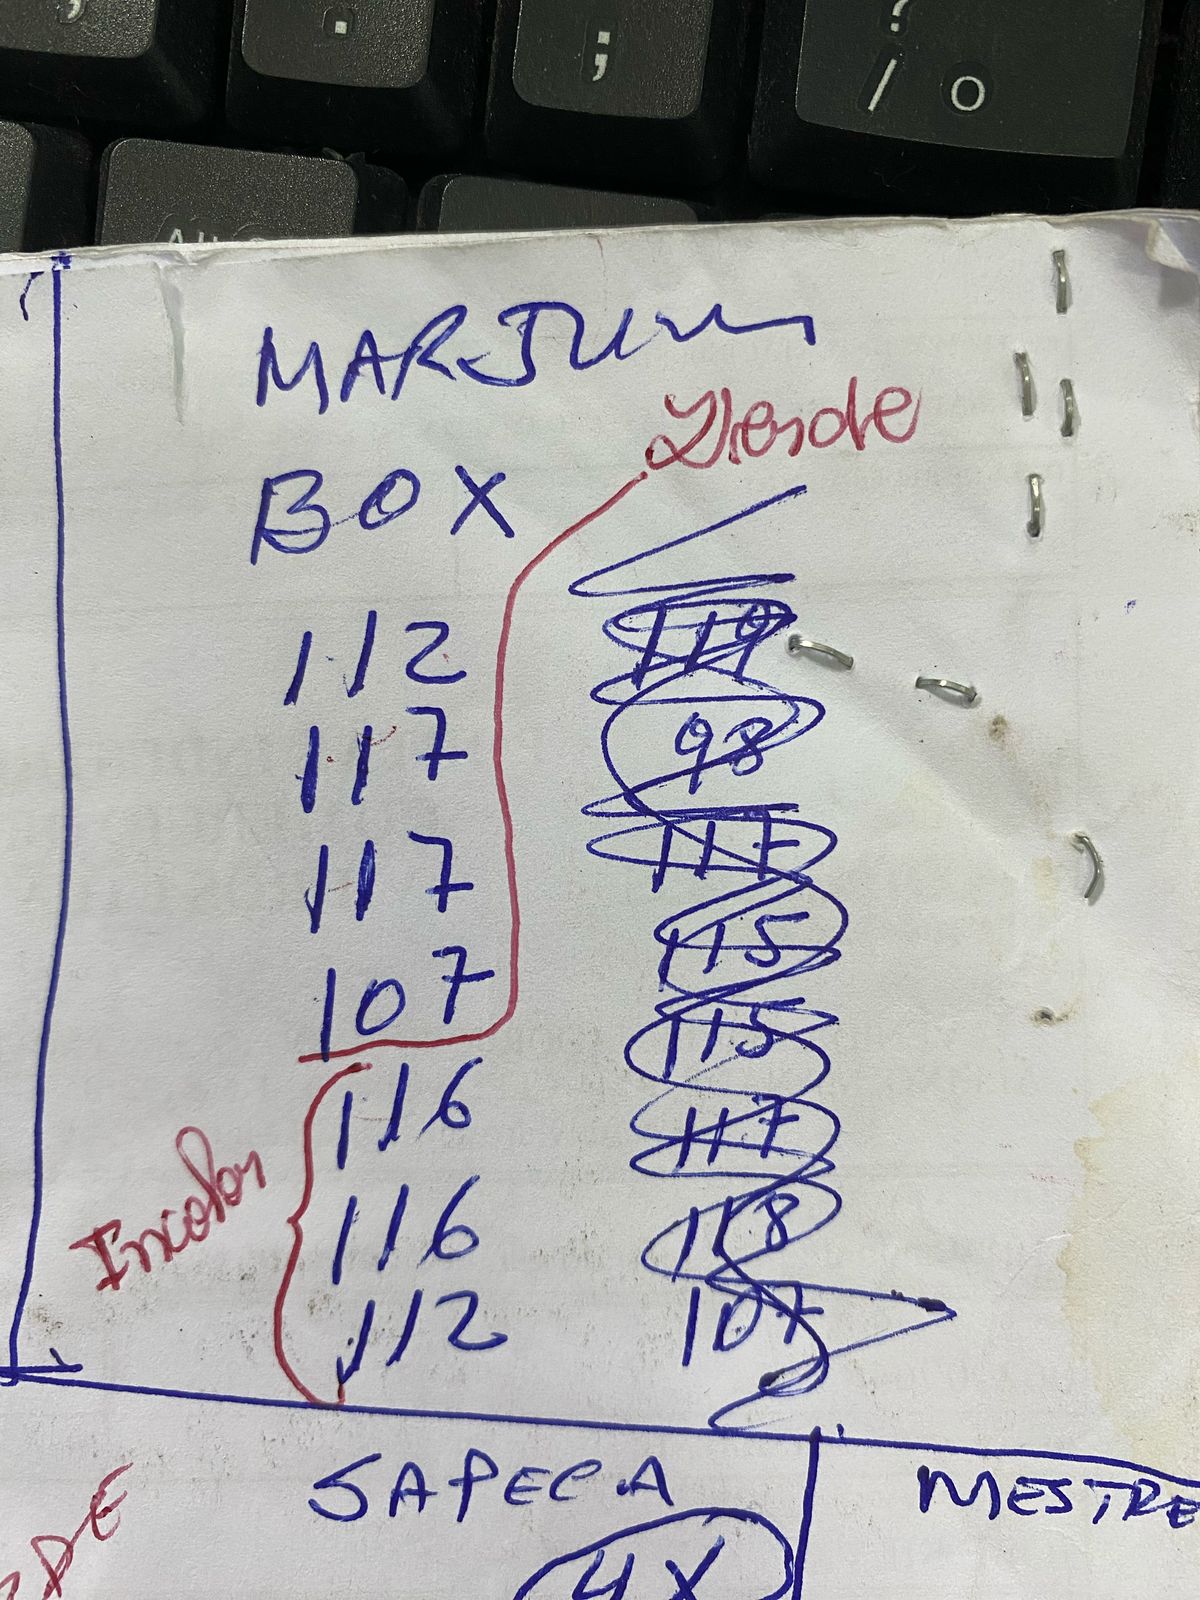 BOX
Verde
112 119
117 98
117 117
107 115
116 115
Incolor
116 117
112 118
107
SAPECA
MESTRE
4X